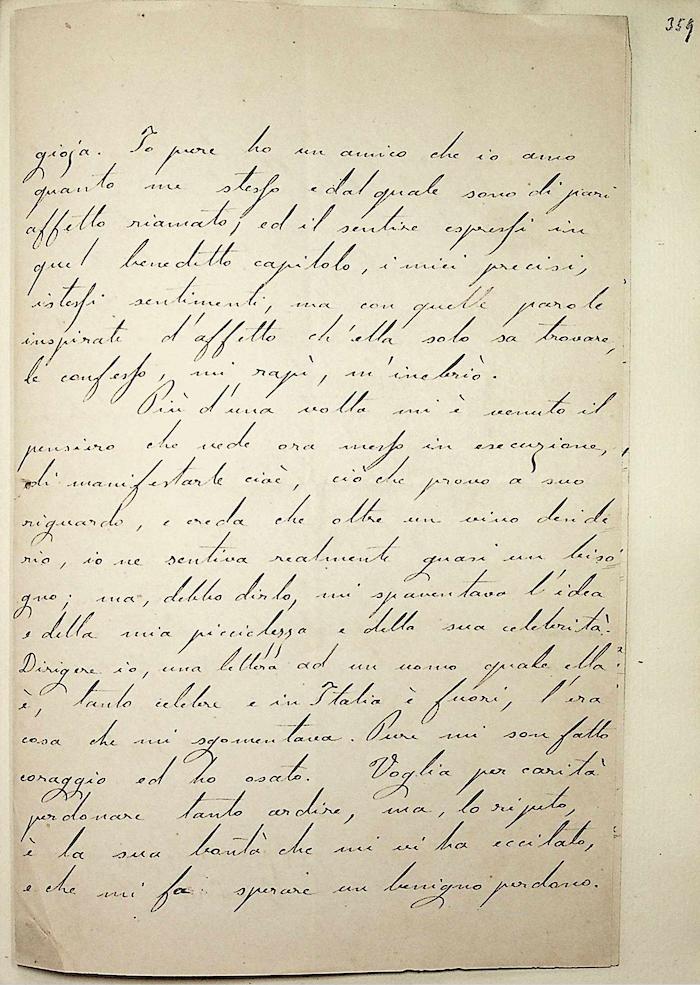 359
gioja. Io pure ho un amico che io amo
quanto me stesso e dal quale sono di pari
affetto riamato; ed il sentire espressi in
quel benedetto capitolo, i miei precisi,
istessi sentimenti, ma con quelle parole
inspirate d'affetto ch'ella solo sa trovare,
le confesso, mi rapì, m'inebriò.
Più d'una volta mi è venuto il
pensiero che vede ora messo in esecuzione,
di manifestarle cioè, ciò che provo a suo
riguardo, e creda che oltre un vivo deside
rio, io ne sentiva realmente quasi un biso
gno; ma, debbo dirlo, mi spaventava l'idea
e della mia picciolezza e della sua celebrità.
Dirigere io, una lettera ad un uomo quale ella
è, tanto celebre e in Italia è fuori, l'era
cosa che mi sgomentava. Pure mi son fatto
coraggio ed ho osato. Voglia per carità
perdonare tanto ardire, ma, lo ripeto,
è la sua bontà che mi vi ha eccitato,
e che mi fa sperare un benigno perdono.